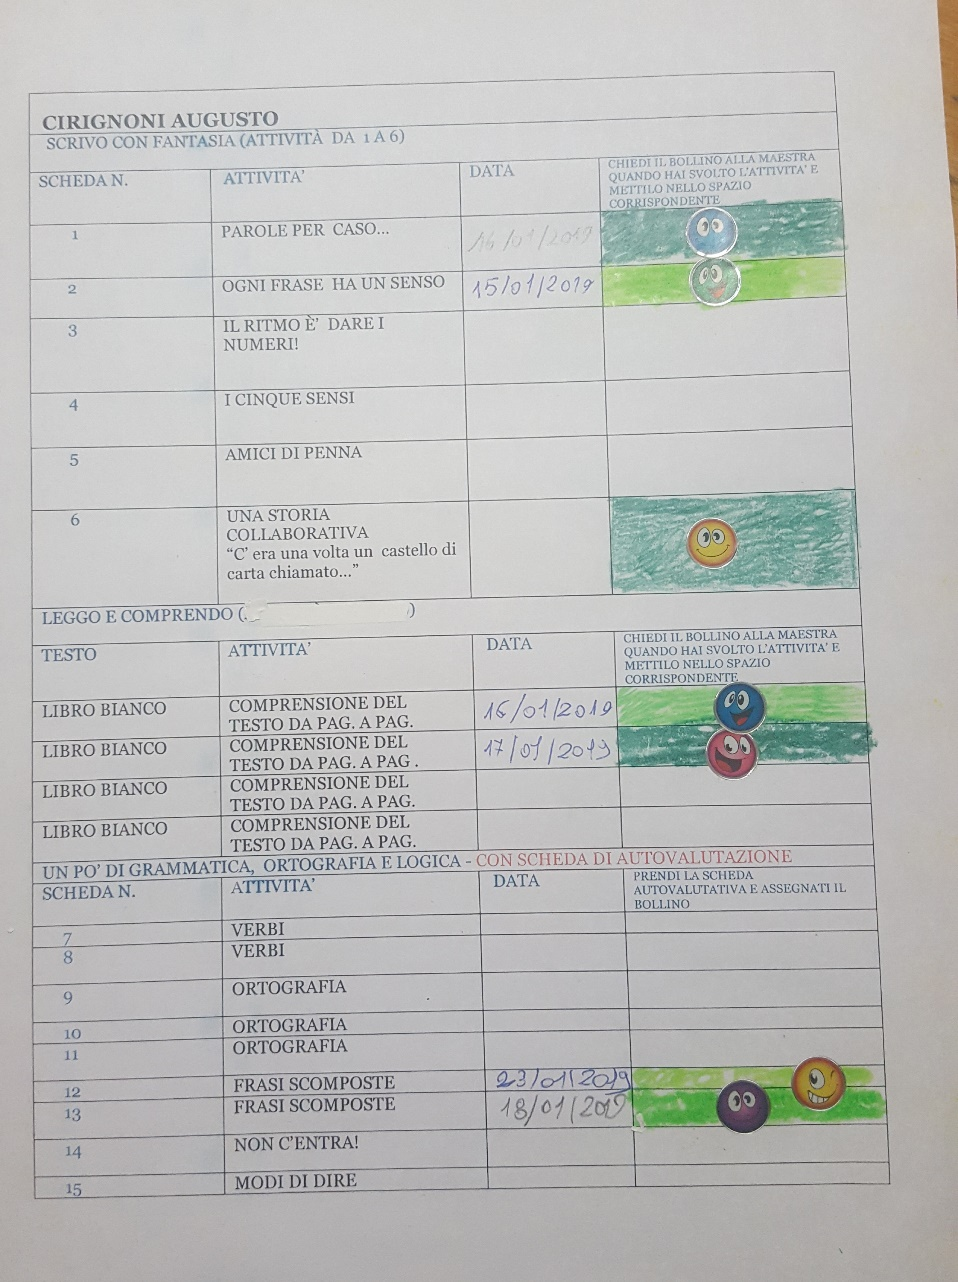 CIRIGNONI AUGUSTO
SCRIVO CON FANTASIA (ATTIVITÀ DA 1 A 6)
SCHEDA N. ATTIVITA' DATA CHIEDI IL BOLLINO ALLA MAESTRA
QUANDO HAI SVOLTO L'ATTIVITA' E
METTILO NELLO SPAZIO
CORRISPONDENTE
1 PAROLE PER CASO... 16/01/2019
2 OGNI FRASE HA UN SENSO 15/01/2019
3 IL RITMO È' DARE I
NUMERI!
4 I CINQUE SENSI
5 AMICI DI PENNA
6 UNA STORIA
COLLABORATIVA
"C' era una volta un castello di
carta chiamato..."
LEGGO E COMPRENDO ( )
TESTO ATTIVITA' DATA CHIEDI IL BOLLINO ALLA MAESTRA
QUANDO HAI SVOLTO L'ATTIVITA' E
METTILO NELLO SPAZIO
CORRISPONDENTE
LIBRO BIANCO COMPRENSIONE DEL
TESTO DA PAG. A PAG. 16/01/2019
LIBRO BIANCO COMPRENSIONE DEL
TESTO DA PAG. A PAG . 17/01/2019
LIBRO BIANCO COMPRENSIONE DEL
TESTO DA PAG. A PAG.
LIBRO BIANCO COMPRENSIONE DEL
TESTO DA PAG. A PAG.
UN PO' DI GRAMMATICA, ORTOGRAFIA E LOGICA - CON SCHEDA DI AUTOVALUTAZIONE
SCHEDA N. ATTIVITA' DATA PRENDI LA SCHEDA
AUTOVALUTATIVA E ASSEGNATI IL
BOLLINO
7 VERBI
8 VERBI
9 ORTOGRAFIA
10 ORTOGRAFIA
11 ORTOGRAFIA
12 FRASI SCOMPOSTE 23/01/2019
13 FRASI SCOMPOSTE 18/01/2019
14 NON C'ENTRA!
15 MODI DI DIRE